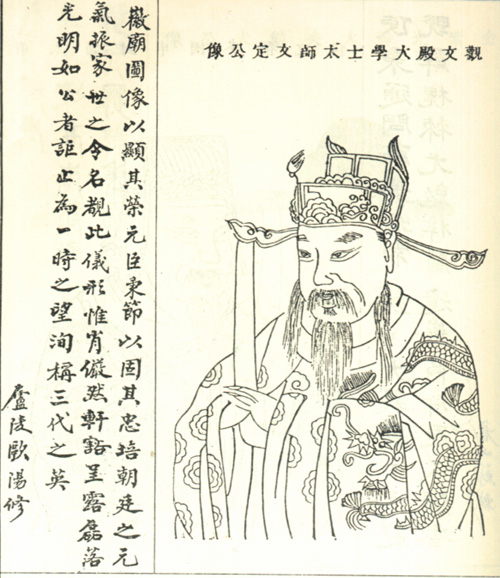 觀文殿大學士太師文定公像
徽廟圖像以顯其榮元臣秉節以固其忠培朝廷之元
氣振家世之令名覩此儀形惟肖儼然軒豁呈露磊落
光明如公者詎止為一時之望洵稱三代之英
廬陵歐陽修